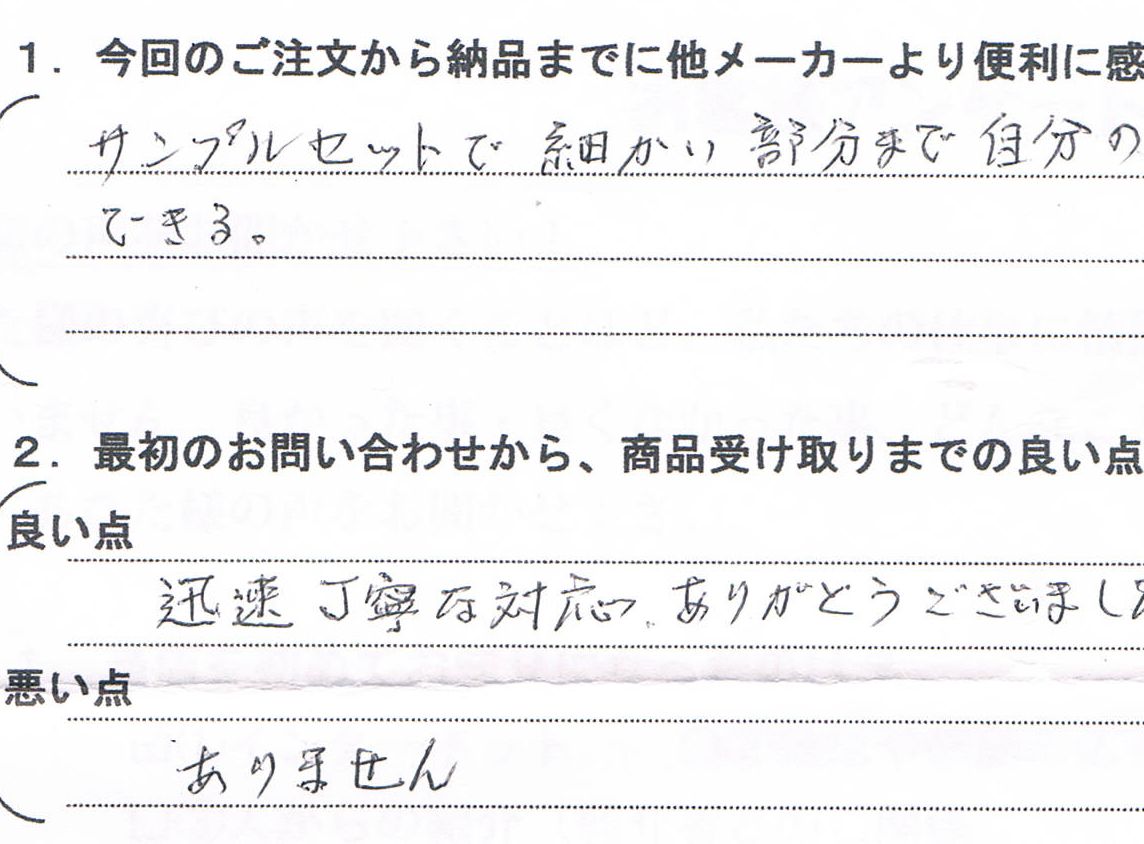 1. 今回のご注文から納品までに他メーカーより便利に感
サンプルセットで細かい部分まで自分の
できる。
2. 最初のお問い合わせから、商品受け取りまでの良い点
良い点
迅速丁寧な対応、ありがとうございまし
悪い点
ありません